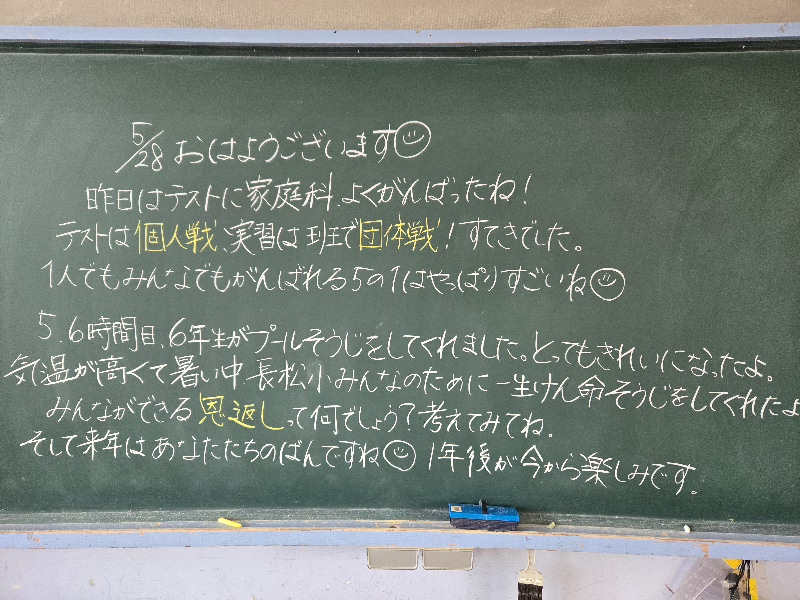 5/28 おはようございます
昨日はテストに家庭科、よくがんばったね！
テストは個人戦、実習は班で団体戦！すてきでした。
1人でもみんなでもがんばれる5の1はやっぱりすごいね
5.6時間目、6年生がプールそうじをしてくれました。とってもきれいになったよ。
気温が高くて暑い中長松小みんなのために一生けん命そうじをしてくれたよ
みんなができる恩返しって何でしょう？考えてみてね。
そして来年はあなたたちのばんですね 1年後が今から楽しみです。